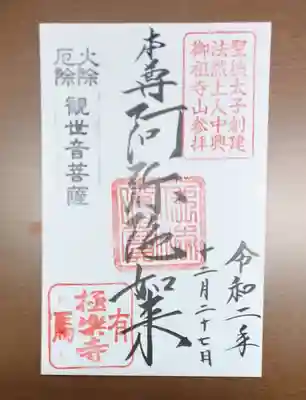 聖徳太子創建
法然上人中興
御祖寺山参拝
本尊 阿弥陀如来
火除
厄除
観世音菩薩
令和二年
十二月二十七日
有馬
極楽寺